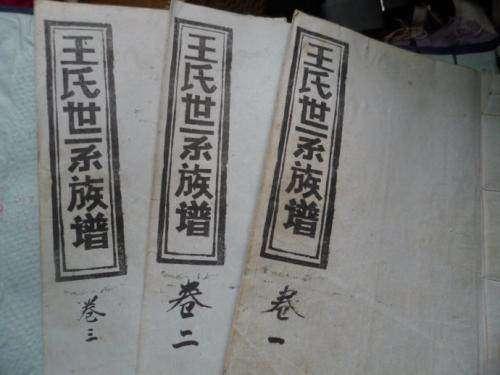 王氏世系族谱
卷三
王氏世系族谱
卷二
王氏世系族谱
卷一